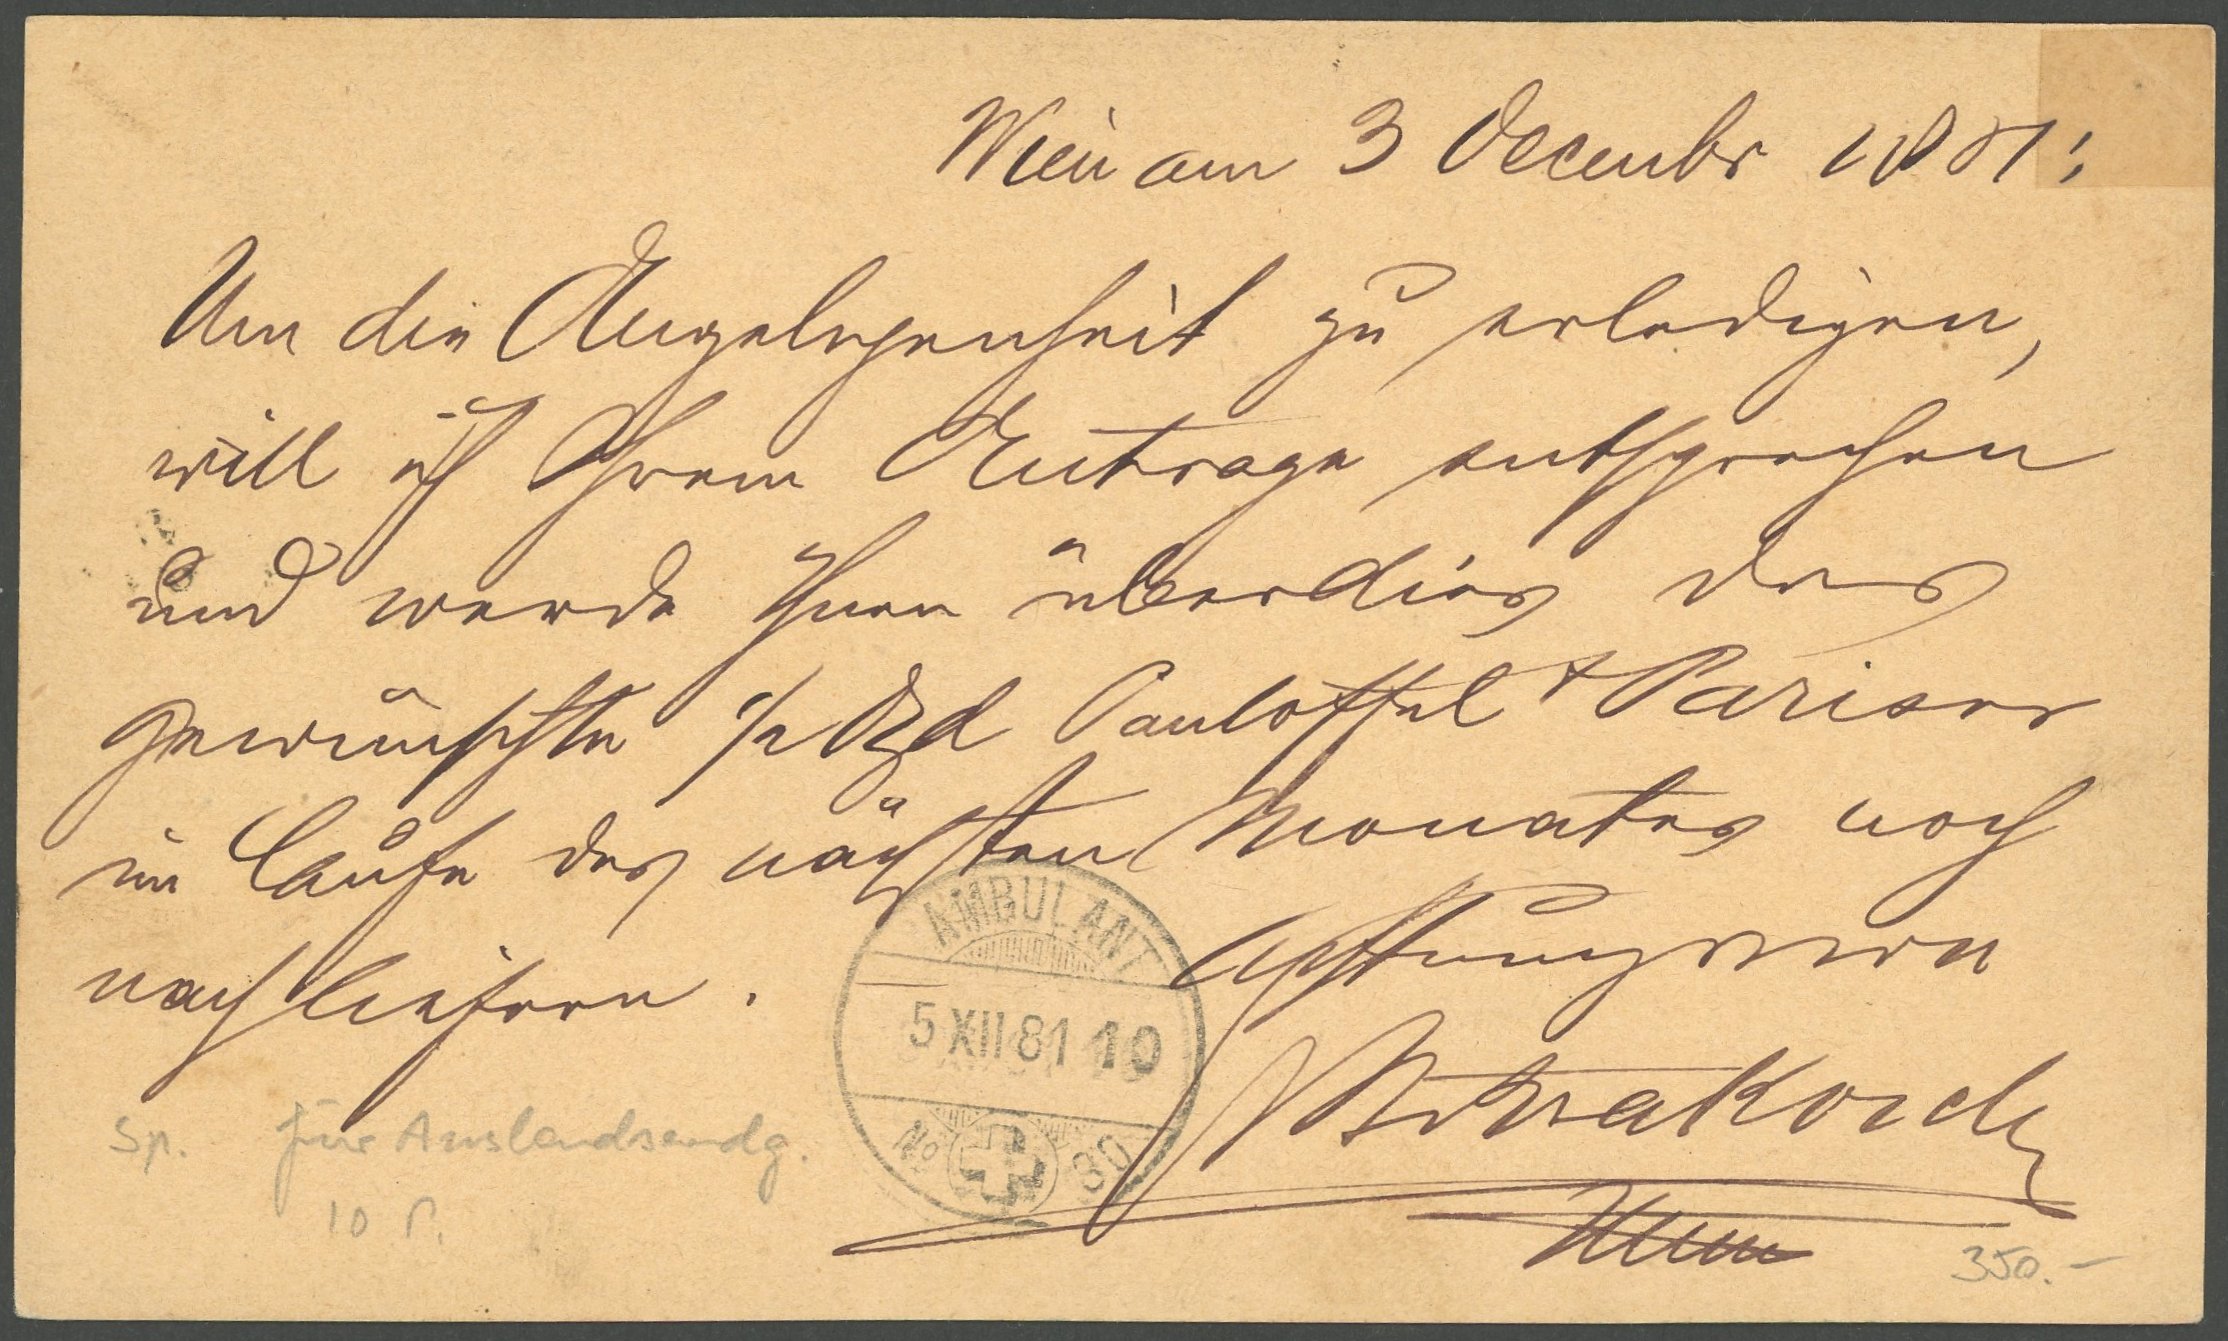 Wien am 3 Decembr 1881:
Um die Angelegenheit zu erledigen,
will ich Ihrem Antrage entsprechen
und werde Ihnen überdies das
gewünschte 1/2 Dzd Pantoffel + Pariser
im Laufe des nächsten Monates noch
nachliefern. Achtungsvoll
AMBULANT
5 XII 81 10
No 30
Sp. für Auslandsendg.
10 P.
Wien
350.-